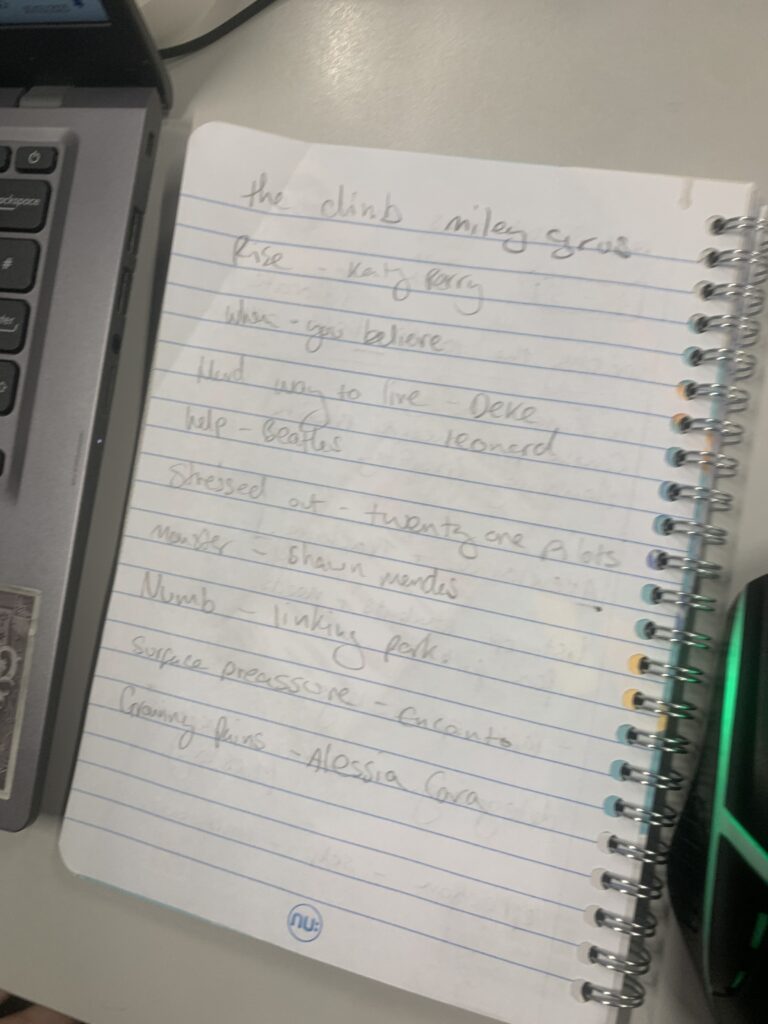 ackspace
#
the climb miley cyrus
Rise - Katy Perry
When - you believe
Hard way to live - Deke
Leonard
help - Beatles
Stressed out - twenty one Pilots
Monster - Shawn mendes
Numb - linking park.
Surface preassure - Encanto
Growing Pains - Alessia Cara
nu: